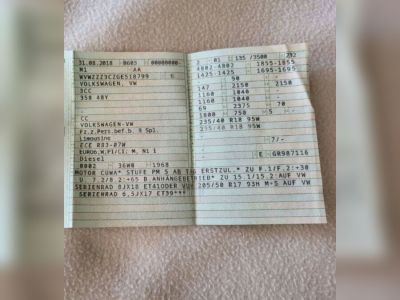 31.08.2018 0603 00000000
M1 AA
6
VOLKSWAGEN, VW
3CC
358 48Y
CC
VOLKSWAGEN-VW
Fz.z.Pers.bef.b. 8 Spl.
Limousine
ECE R83-07W
Diesel
0002 36W0 1968
01 135 /3500 292
4802-4802 1855-1855
1425-1425 1695-1695
147 90
2150 2150
1160 1040
1160 1040
69 2375 70
1800 750 5
235/40 R18 95W
235/40 R18 95W
7/-
E GR987116
MOTOR CUWA* STUFE PM 5 AB TAG ERSTZUL.* ZU F.1/F.2:+30
U. 7.2/8.2:+65 B.ANHÄNGEBETRIEB* ZU 15.1/15.2 AUF VW
SERIENRAD 8JX18 ET41ODER VUH 205/50 R17 93H M+S AUF VW
SERIENRAD 6,5JX17 ET39***